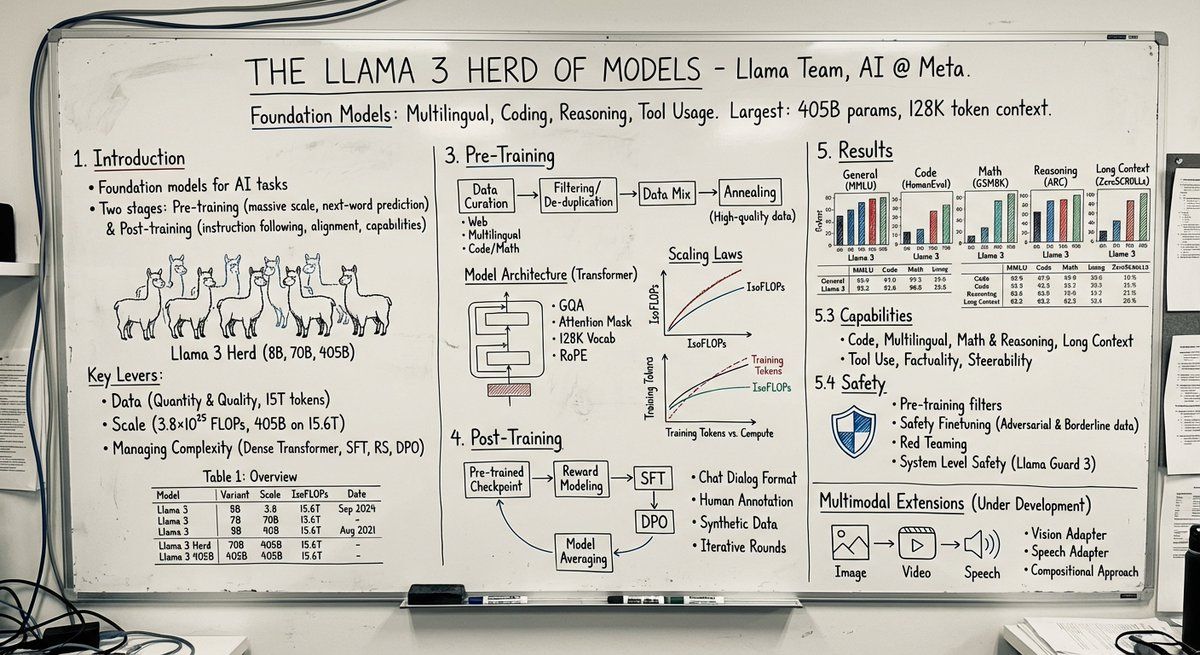 THE LLAMA 3 HERD OF MODELS – Llama Team, AI @ Meta.
Foundation Models: Multilingual, Coding, Reasoning, Tool Usage. Largest: 405B params, 128K token context.
1. Introduction
• Foundation models for AI tasks
• Two stages: Pre-training (massive scale, next-word prediction)
& Post-training (instruction following, alignment, capabilities)
Llama 3 Herd (8B, 70B, 405B)
Key Levers:
• Data (Quantity & Quality, 15T tokens)
• Scale (3.8×10²⁵ FLOPs, 405B on 15.6T)
• Managing Complexity (Dense Transformer, SFT, RS, DPO)
Table 1: Overview
Model Variant Scale IsoFLOPs Date
Llama 3 3.8 15.6T Sep 2024
Llama 3 70B –
Llama 3 15.6T Aug 2021
Llama 3 Herd 70B 405B 15.6T –
Llama 3 405B 405B 405B 15.6T –
3. Pre-Training
Data Curation
Filtering/ De-duplication
Data Mix
Annealing
(High-quality data)
• Web
• Multilingual
• Code/Math
Model Architecture (Transformer)
• GQA
• Attention Mask
• 128K Vocab
• RoPE
Scaling Laws
IsoFLOPs
IsoFLOPs
IsoFLOPs
Training Tokens
Training Tokens
IsoFLOPs
Training Tokens vs. Compute
4. Post-Training
Pre-trained Checkpoint
Reward Modeling
SFT
DPO
Model Averaging
• Chat Dialog Format
• Human Annotation
• Synthetic Data
• Iterative Rounds
5. Results
General (MMLU)
Code (HumanEval)
Math (GSM8K)
Reasoning (ARC)
Long Context (ZeroSCROLLs)
Llama 3
Llama 3
Llama 3
Llama 3
Llama 3
MMLU Code Math Long
General
Llama 3 93.2
MMLU Code Math Long ZeroSCROLLS
Code
Code
Reasoning
Long Context 62.2
5.3 Capabilities
• Code, Multilingual, Math & Reasoning, Long Context
• Tool Use, Factuality, Steerability
5.4 Safety
• Pre-training filters
• Safety Finetuning (Adversarial & Borderline data)
• Red Teaming
• System Level Safety (Llama Guard 3)
Multimodal Extensions (Under Development)
Image
Video
Speech
• Vision Adapter
• Speech Adapter
• Compositional Approach